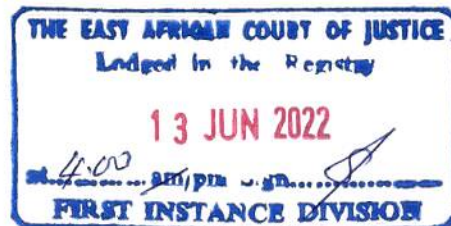 THE EAST AFRICAN COURT OF JUSTICE
Lodged in the Registry
13 JUN 2022
at 4:00 am/pm Sgn
FIRST INSTANCE DIVISION